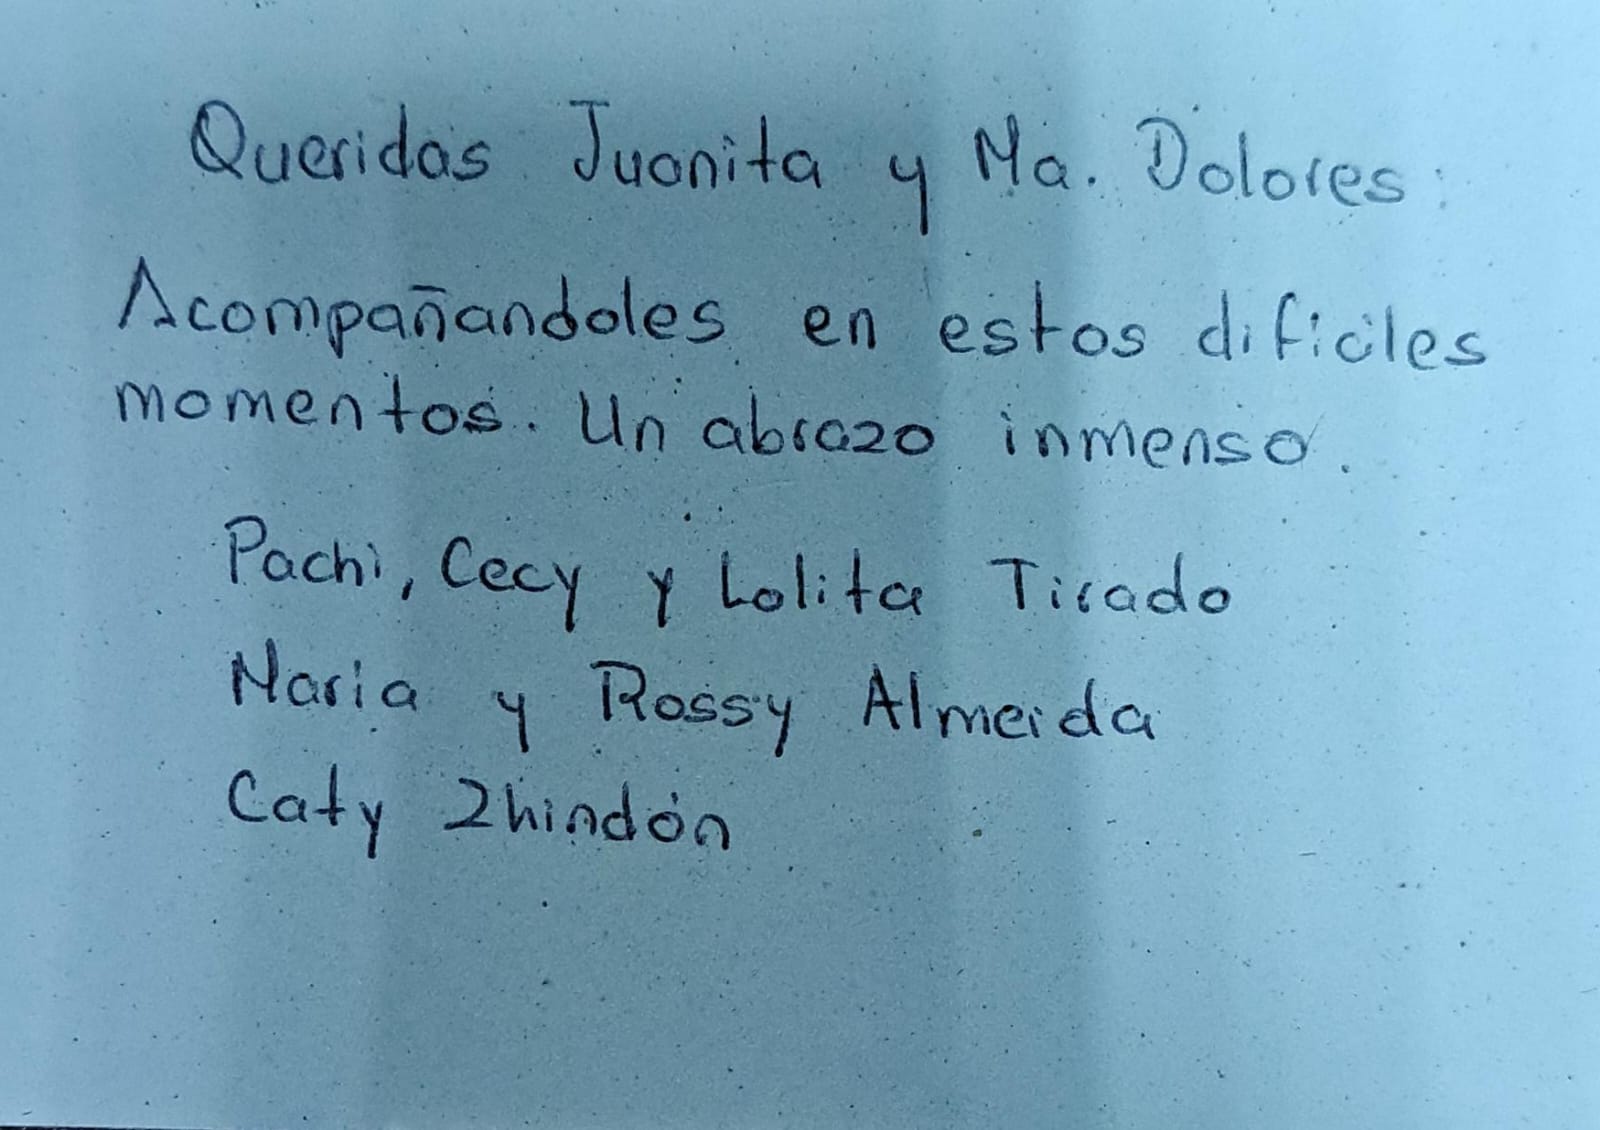 Queridas Juanita y Ma. Dolores:
Acompañandoles en estos dificiles
momentos. Un abrazo inmenso.
Pachi, Cecy y Lolita Tirado
Maria y Rossy Almeida
Caty Zhindón